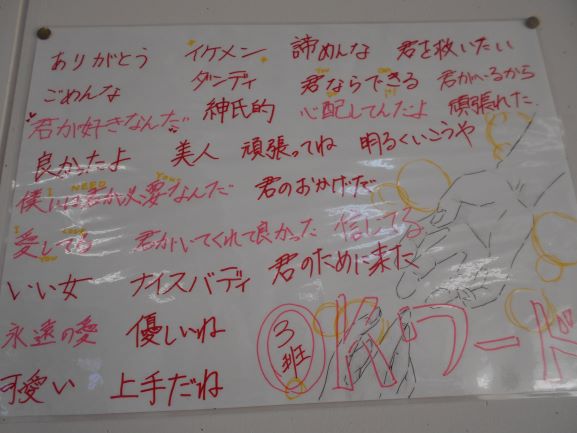 ありがとう イケメン 諦めんな 君を救いたい
ごめんな ダンディ 君ならできる 君がいるから
You Can Do It!
君が好きなんだ 紳氏的 心配してんだよ 頑張れた
良かったよ 美人 頑張ってね 明るくいこうや
I NEED You
僕には君が必要なんだ 君のおかげだ
I Love You
愛してる 君がいてくれて良かった 信じてる
いい女 ナイスバディ 君のために来た
永遠の愛 優しいね
3班 OKワード
可愛い 上手だね